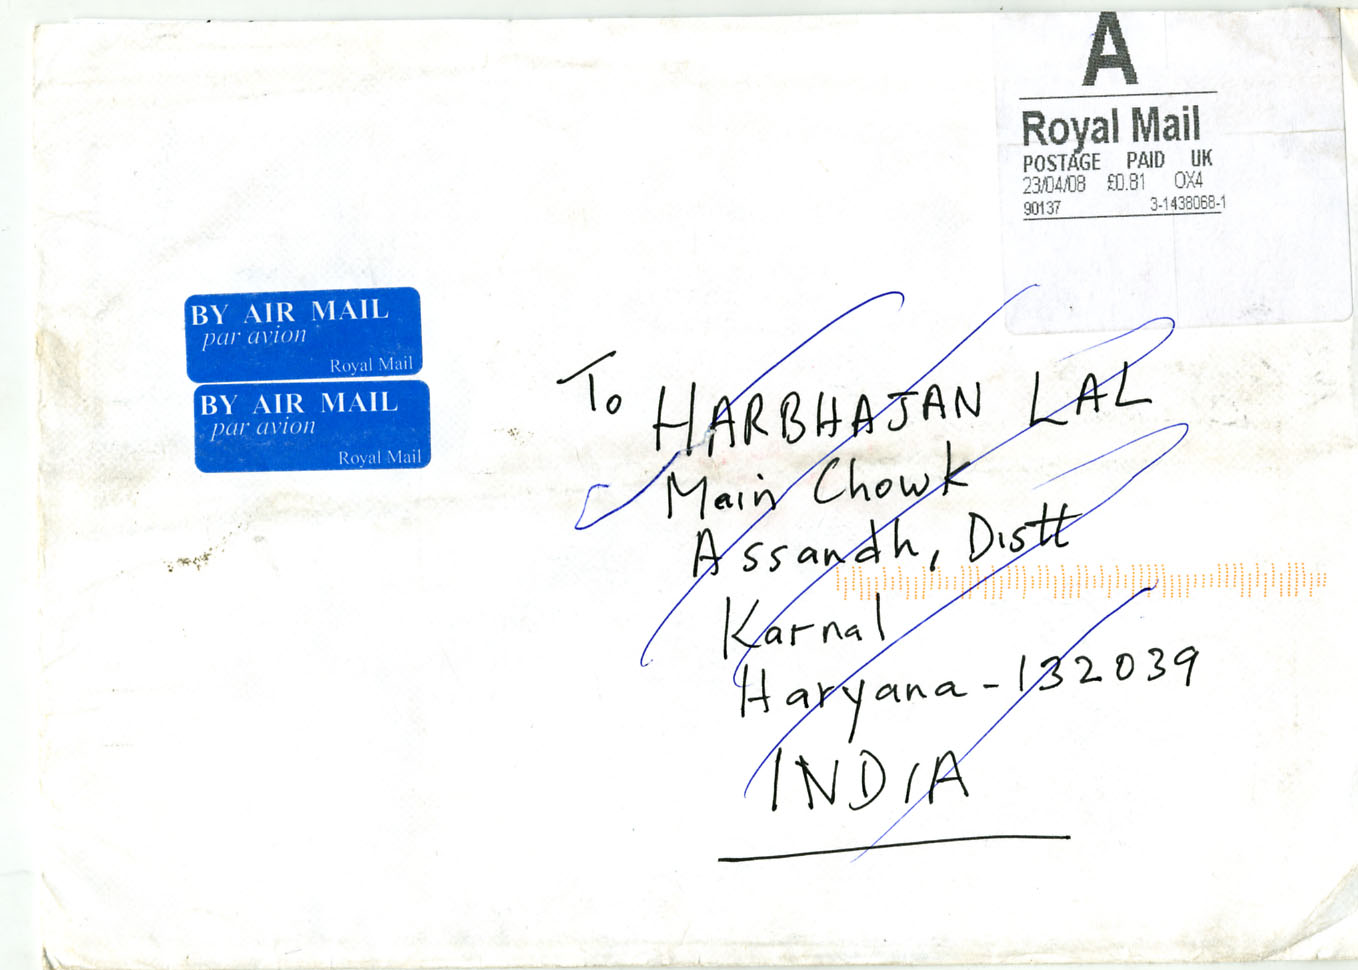 A
Royal Mail
POSTAGE PAID UK
23/04/08 £0.81 OX4
90137 3-1438068-1
BY AIR MAIL
par avion
Royal Mail
BY AIR MAIL
par avion
Royal Mail
To HARBHAJAN LAL
Main Chowk
Assandh, Distt
Karnal
Haryana - 132039
INDIA